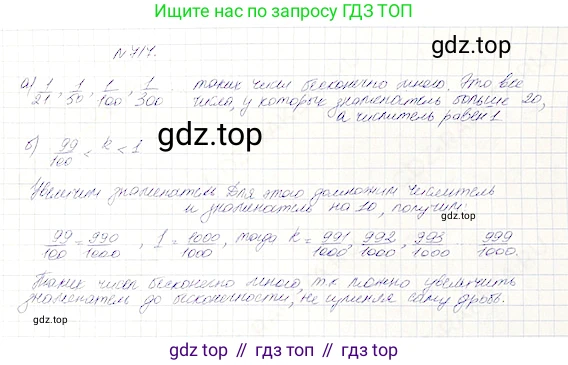 Ищите нас по запросу ГДЗ ТОП
gdz.top
№717.
а) 1/21, 1/50, 1/100, 1/300 ... таких чисел бесконечно много. Это все
числа, у которых знаменатель больше 20,
а числитель равен 1
gdz.top
б) 99/100 < k < 1
Увеличим знаменатель Для этого домножим числитель
и знаменатель на 10, получим:
99/100 = 990/1000, 1 = 1000/1000, тогда k = 991/1000, 992/1000, 993/1000 ... 999/1000.
Таких чисел бесконечно много, т.к можно увеличить
знаменатель до бесконечности, не саму дробь.
gdz.top
gdz top // гдз топ // gdz.top